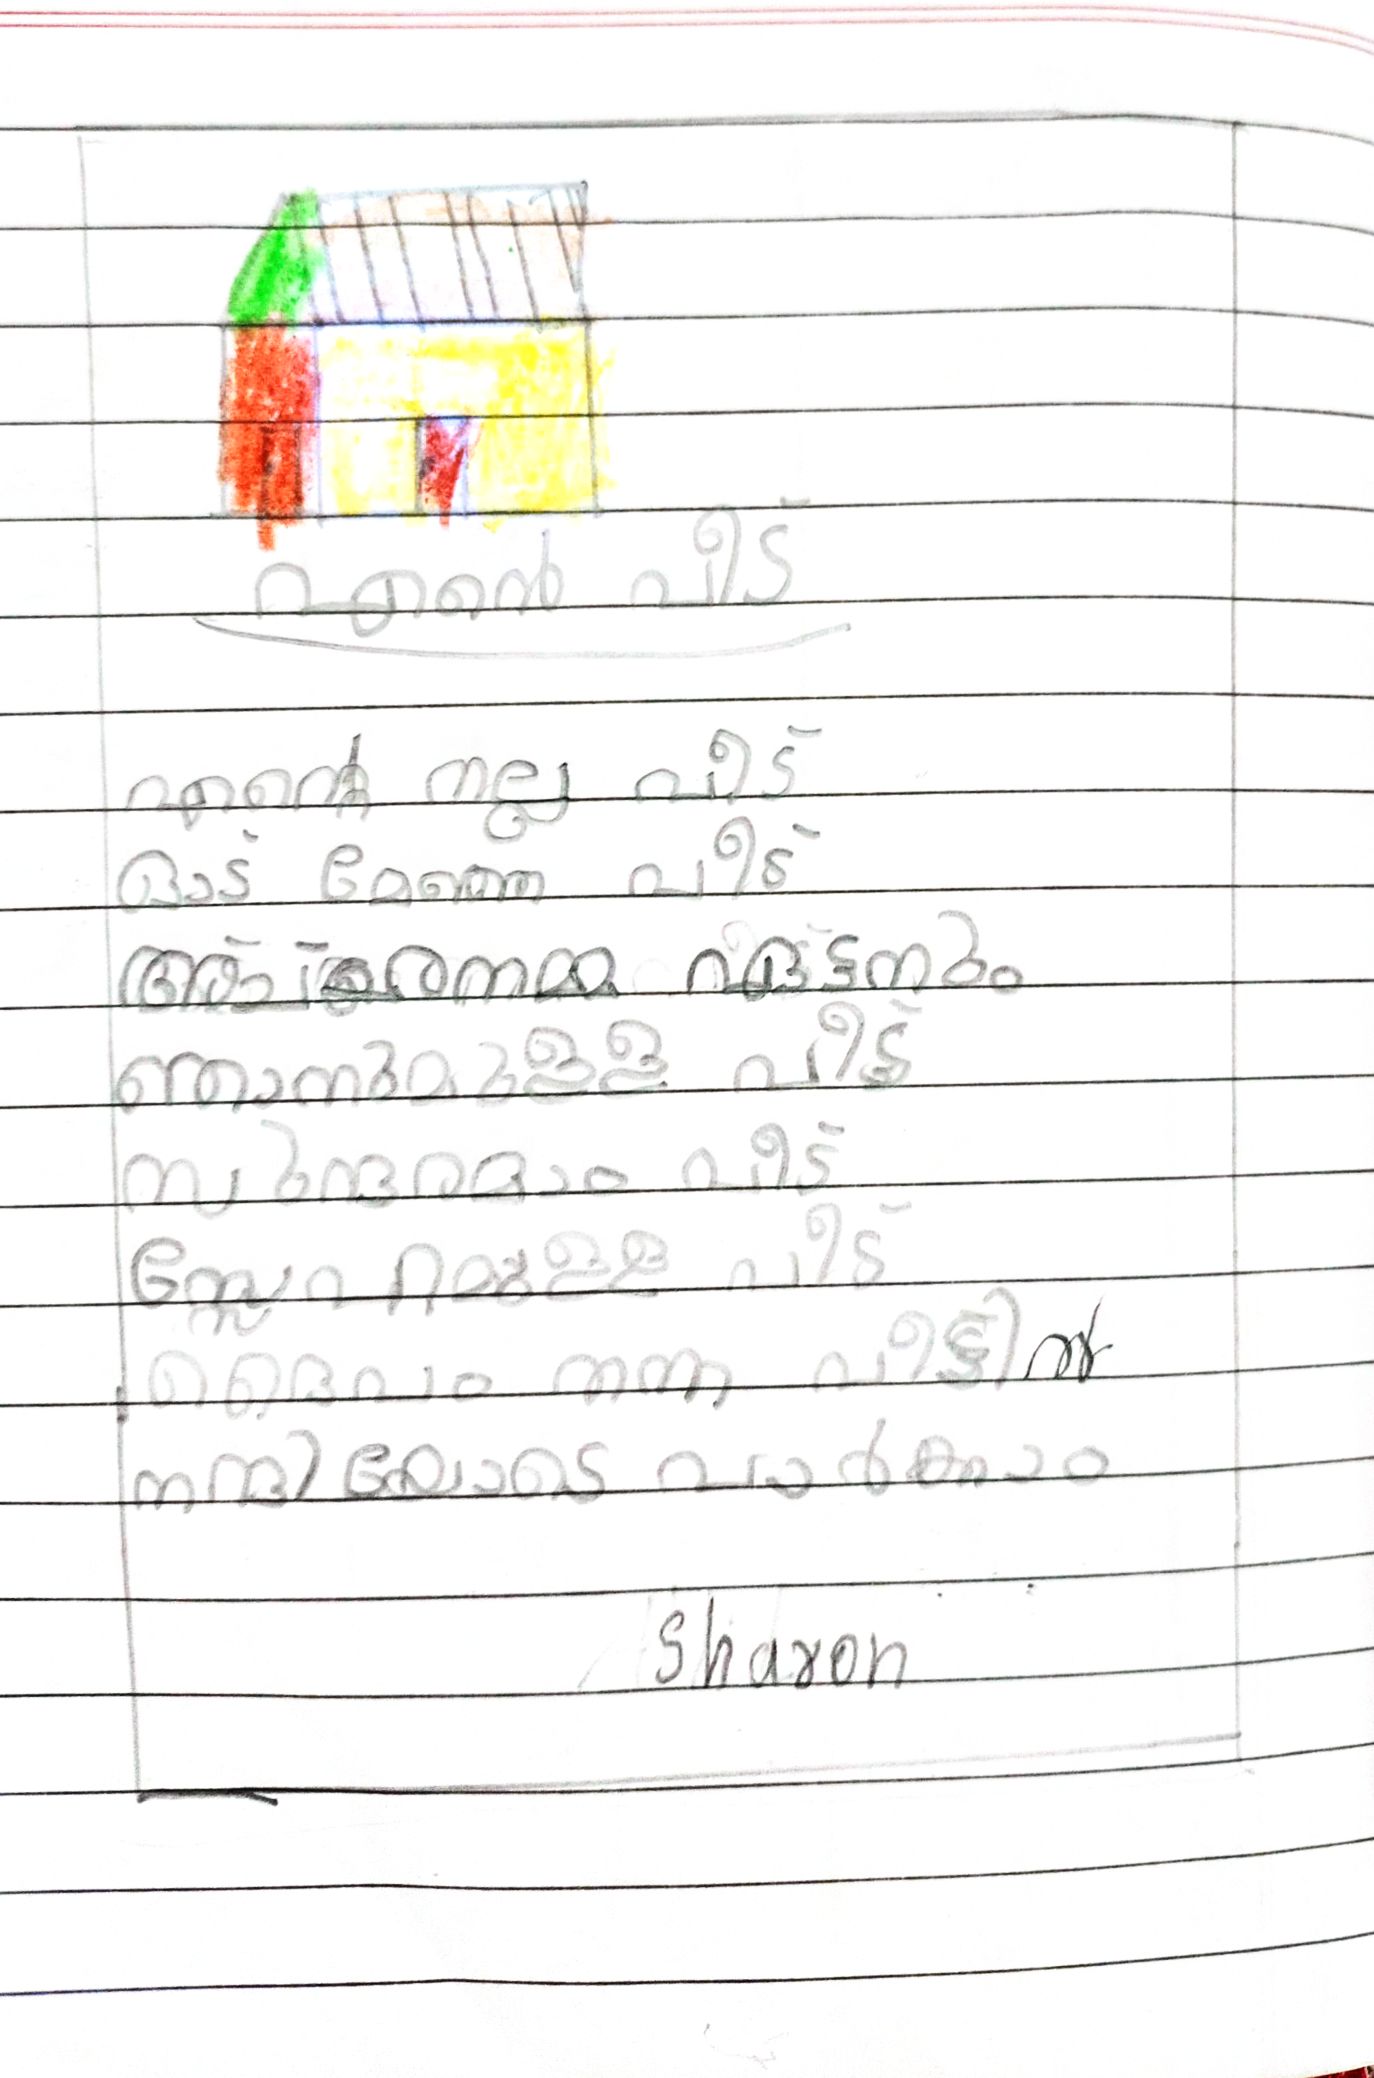 എൻെ വീട്
എൻ്റെ നല്ല വീട്
ഓട് മേഞ്ഞ വീട്
ഏട്ടനും
ഞാനുമുള്ള വീട്
സുന്ദരമാം വീട്
സ്നേഹമുള്ള വീട്
ദൈവം തന്ന വീട്ടിൽ
നന്ദിയോടെ വാർക്കാം
Sharon